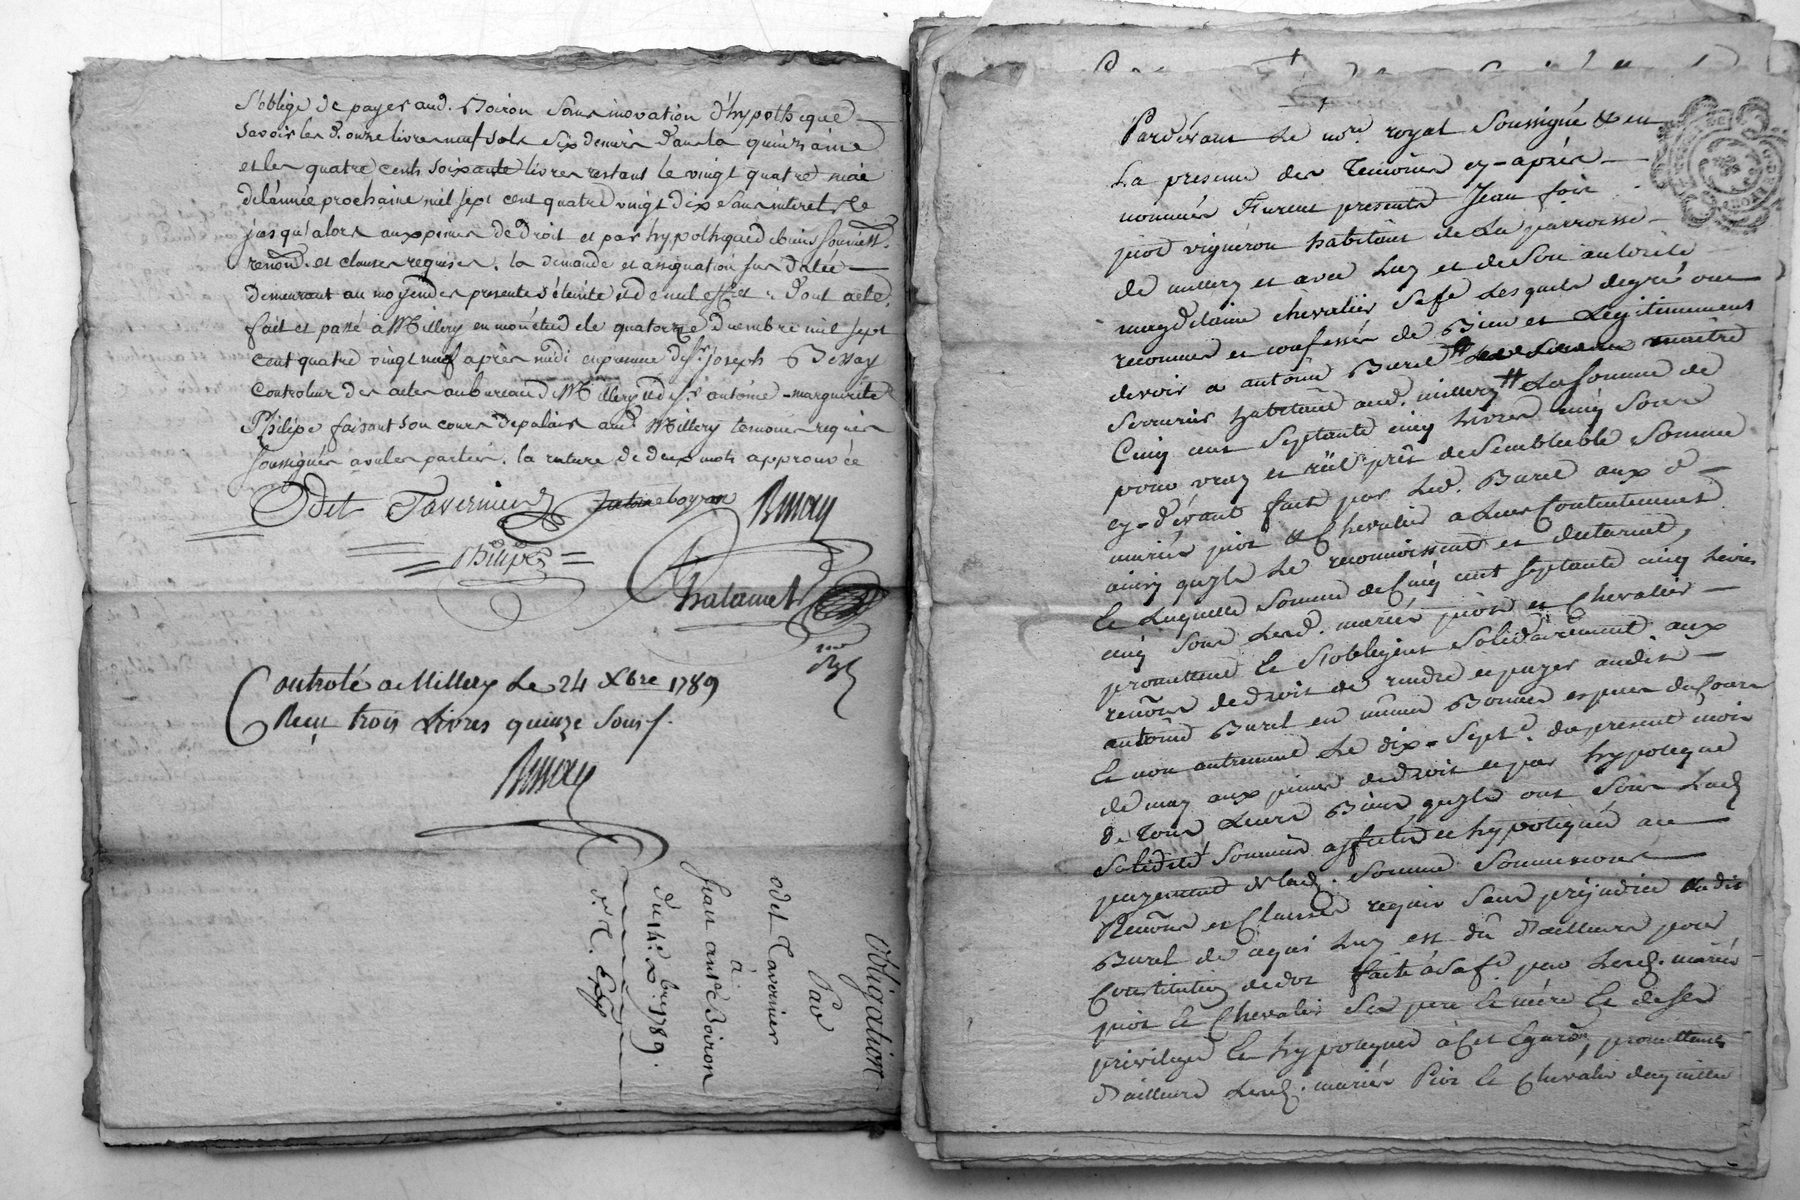 S'oblige de payer aud. Boiron sans inovation d'hypotheque
savoir les d. onze livres neuf sols six deniers dans la quinzaine
et les quatre cents soixante livres restans le vingt quatre mai
de l'année prochaine mil sept cent quatre vingt dix sans interets
jusqu'alors aux peines de droit et par hypotheque de biens soumiss.
renon. et clauses requises. la demande et assignation sus datée
demeurant au moyen des presentes éteinte et de nul effet. dont acte.
fait et passé à Millery en mon étude le quatorze decembre mil sept
cent quatre vingt neuf après midi en presence de sr. joseph Bessay
controleur des actes au bureau de Millery et de sr. antoine-marguerite
Philipe faisant son cours de palais aud. Millery temoins requis
soussignés avec les parties. la rature de deux mots approuvée
Odet Tavernier Bessay
Philipe
Chalamet
nre
Rl
Controlé a Millery le 24 Xbre 1789
Reçu trois Livres quinze sous
Bessay
Obligation
Par
odet Tavernier
à
Jean antne Boiron
du 14 Xbre 1789.
Pardevant le nore. royal soussigné & en
La presence des Temoins cy-après
nommés furent presents Jean
piot vigneron habitant de la parroisse
de millery et avec luy et de son autorité
magdelaine chevalier sa fe. Lesquels de gré ont
reconnus et confessés de Bien et Legitimement
devoir a antoine Burel maitre
serrurier habitant aud. millery La somme de
Cinq cent septante cinq Livres cinq sous
pour vray et réel prêt de semblable somme
cy-devant fait par led. Burel aux d.
mariés piot & Chevalier a Leur Contentement
ainsy qu'yls Le reconnoissent et declarent,
Et Laquelle somme de Cinq cent septante cinq Livres
cinq sous Lesd. mariés piot et Chevalier
promettent et s'obligent solidairement aux
renons de droit de rendre et payer audit
antoine Burel en même Bonnes especes du Cours
Et non autrement Le dix-sept. du present mois
de may aux peines de droit et par hypoteque
de Tous Leurs Biens qu'yls ont sous Lad.
solidité soumis affectés et hypotequés au
payement de lad. somme soumissions
Renons et Clauses requis sans prejudice audit
Burel de ce qui Luy est dû d'ailleurs pour
Constitution de dot faite à sa fe. par Lesd. mariés
piot et Chevalier ses pere et mère et de ses
privileges et hypoteques à cet Egard, promettant
d'ailleurs Lesd. mariés Piot et Chevalier